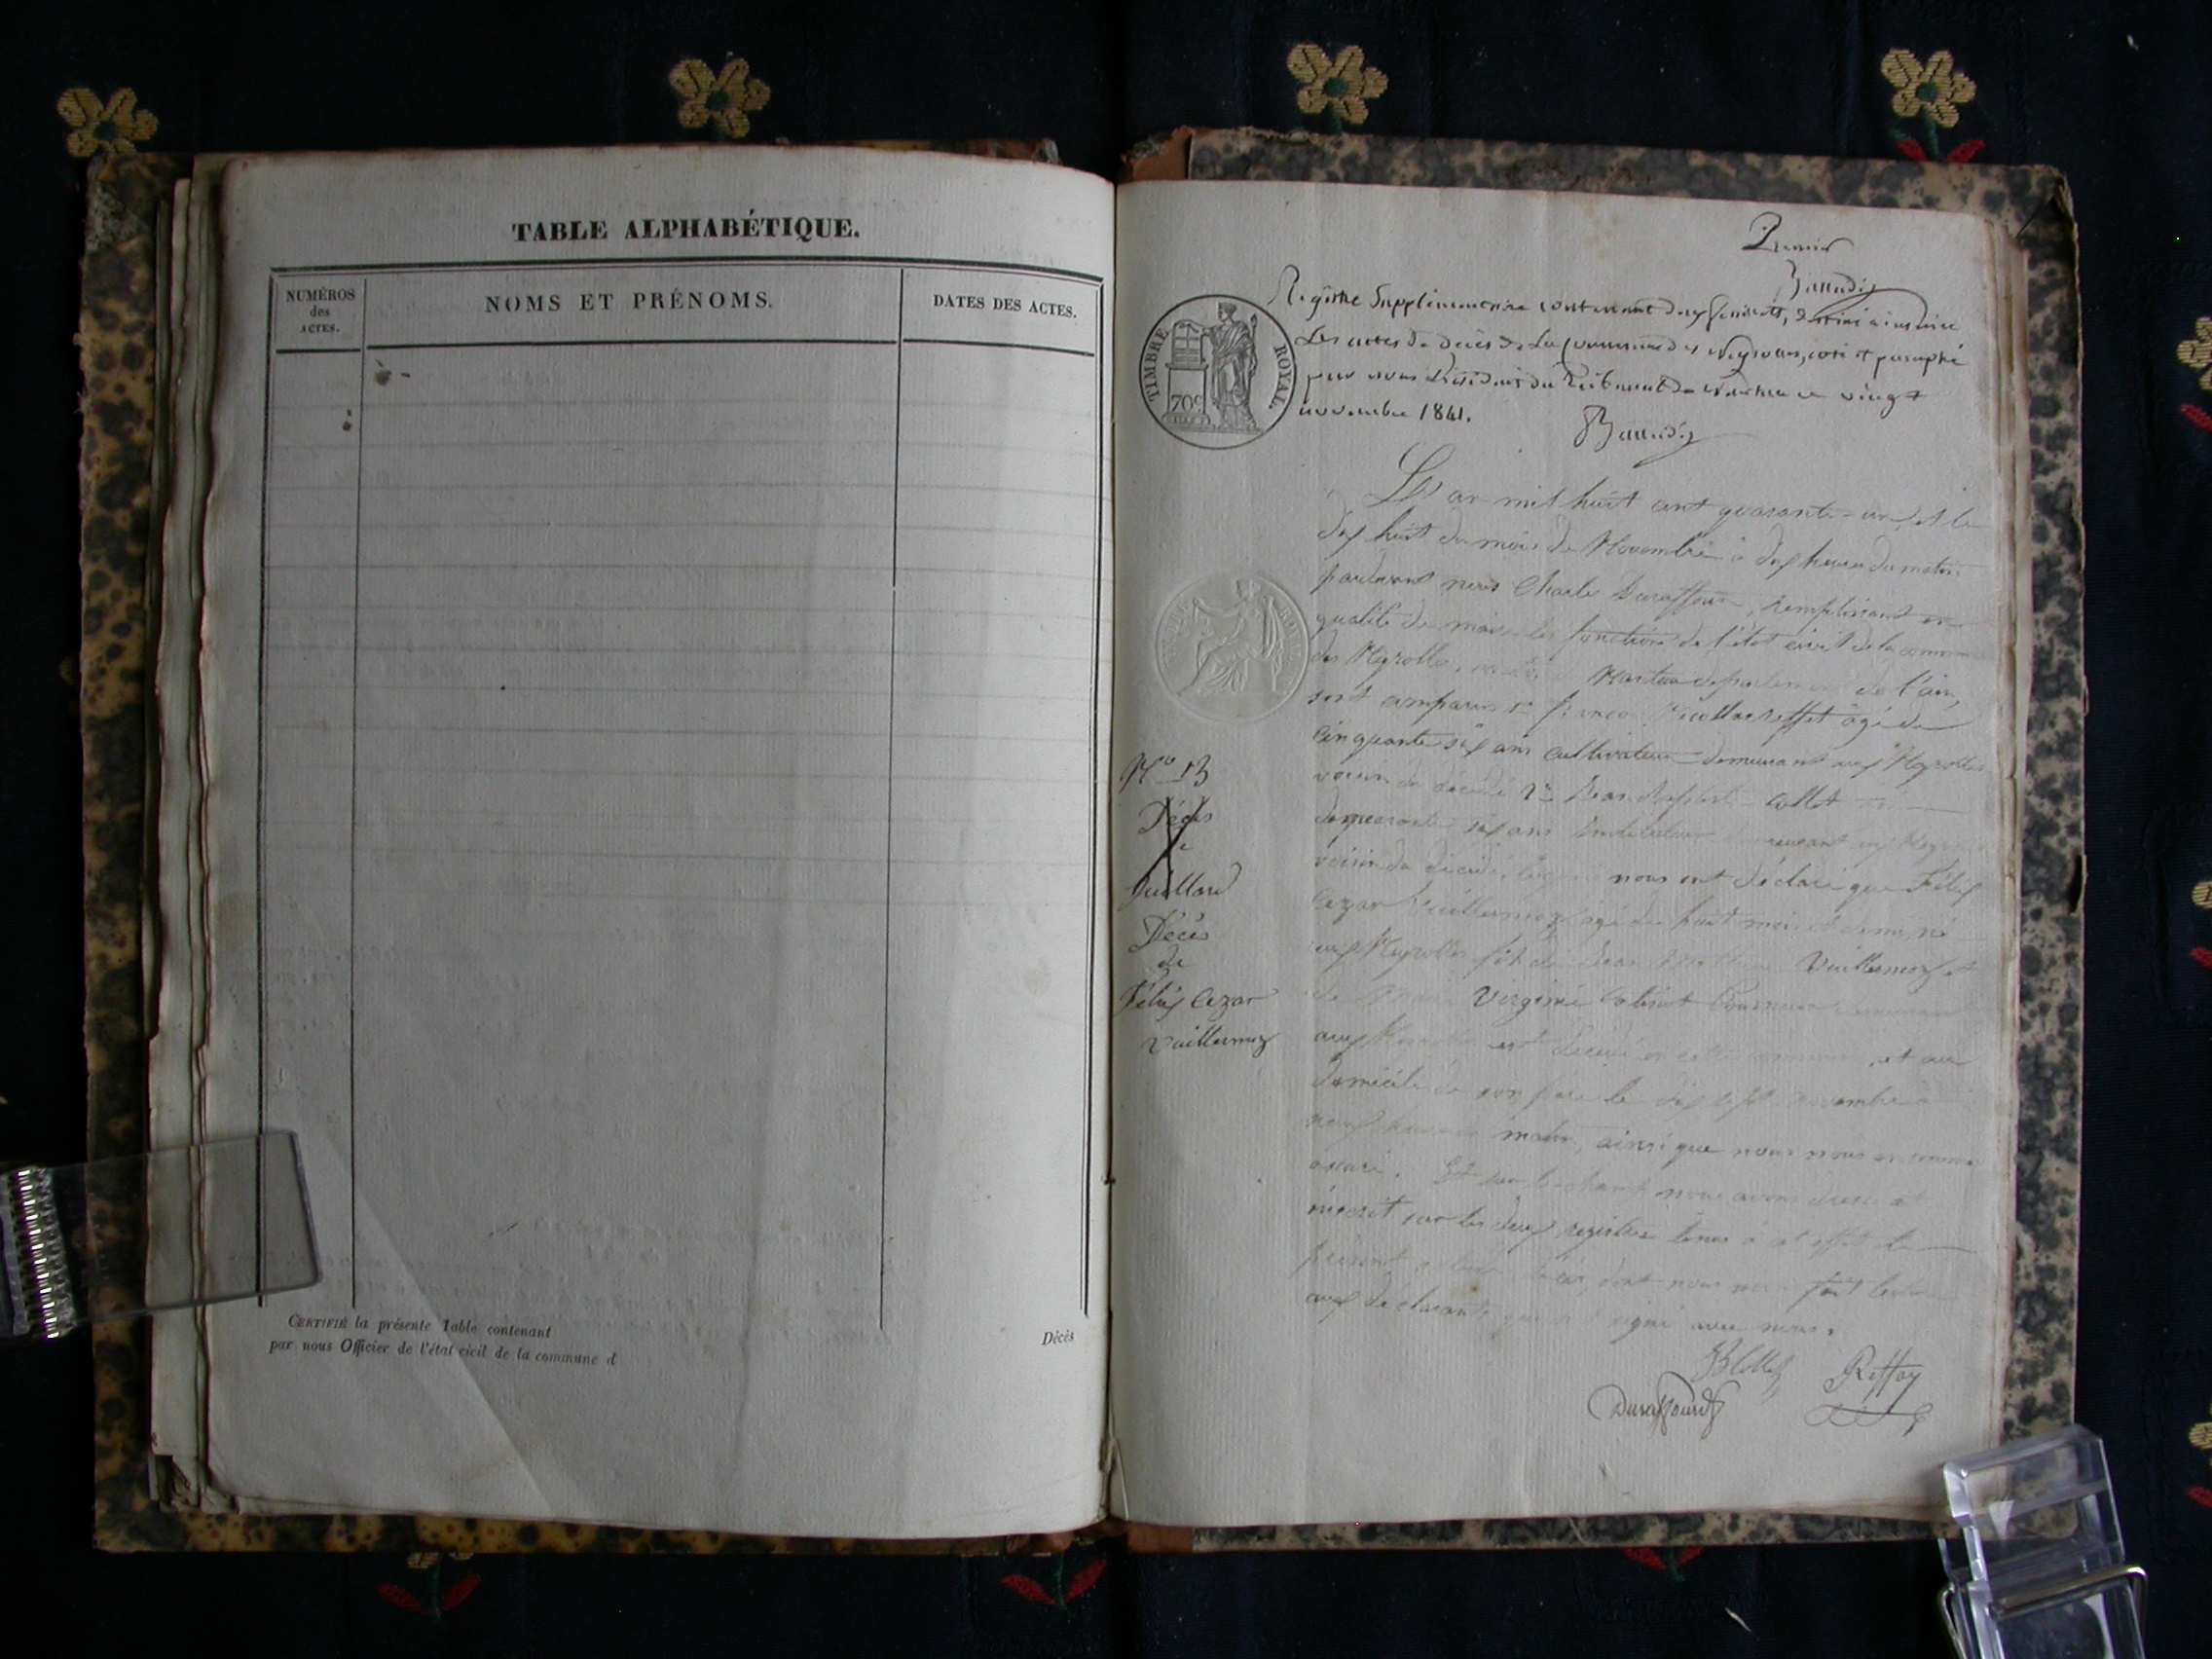 TABLE ALPHABÉTIQUE.
NUMÉROS
des
ACTES.
NOMS ET PRÉNOMS.
DATES DES ACTES.
CERTIFIÉ la présente Table contenant
Décès
par nous Officier de l'état civil de la commune d
Premier
TIMBRE ROYAL.
70c
Registre Supplémentaire contenant deux feuillets, destiné à inscrire
Les actes de décès de La Commune des Neyrolles, coté et paraphé
par nous Président du Tribunal de Nantua ce vingt
novembre 1841.
L'an mil huit cent quarante-un et le
dix huit du mois de Novembre à dix heures du matin
pardevant nous Charles Duraffour, remplissant en
qualité de maire les fonctions de l'état civil de la commune
des Neyrolles, Nantua département de l'ain,
sont comparus 1° françois Nicollas reffet âgé de
cinquante six ans cultivateur demeurant aux Neyrolles
voisin du décédé 2° Jean Baptiste Collet
six ans Instituteur demeurant aux
voisin du décédé nous ont déclaré que Félix
Cezar Vuillermoz agé de huit mois et demi, né
aux Neyrolles fils de Jean Vuillermoz et
de Marie Virginie
aux Neyrolles est décédé en cette commune, et au
domicile de son père le dix sept novembre à
neuf heures du matin, ainsi que nous nous en sommes
assuré. Et sur le champ nous avons dressé et
inscrit sur les deux registres tenus à cet effet le
présent acte de décès, dont nous avons fait lecture
aux déclarants qui ont signé avec nous.
N° 13
Décès
de
Vuillard
Décès
de
Félix Cezar
Vuillermoz
JB Collet
Reffay
Duraffourd